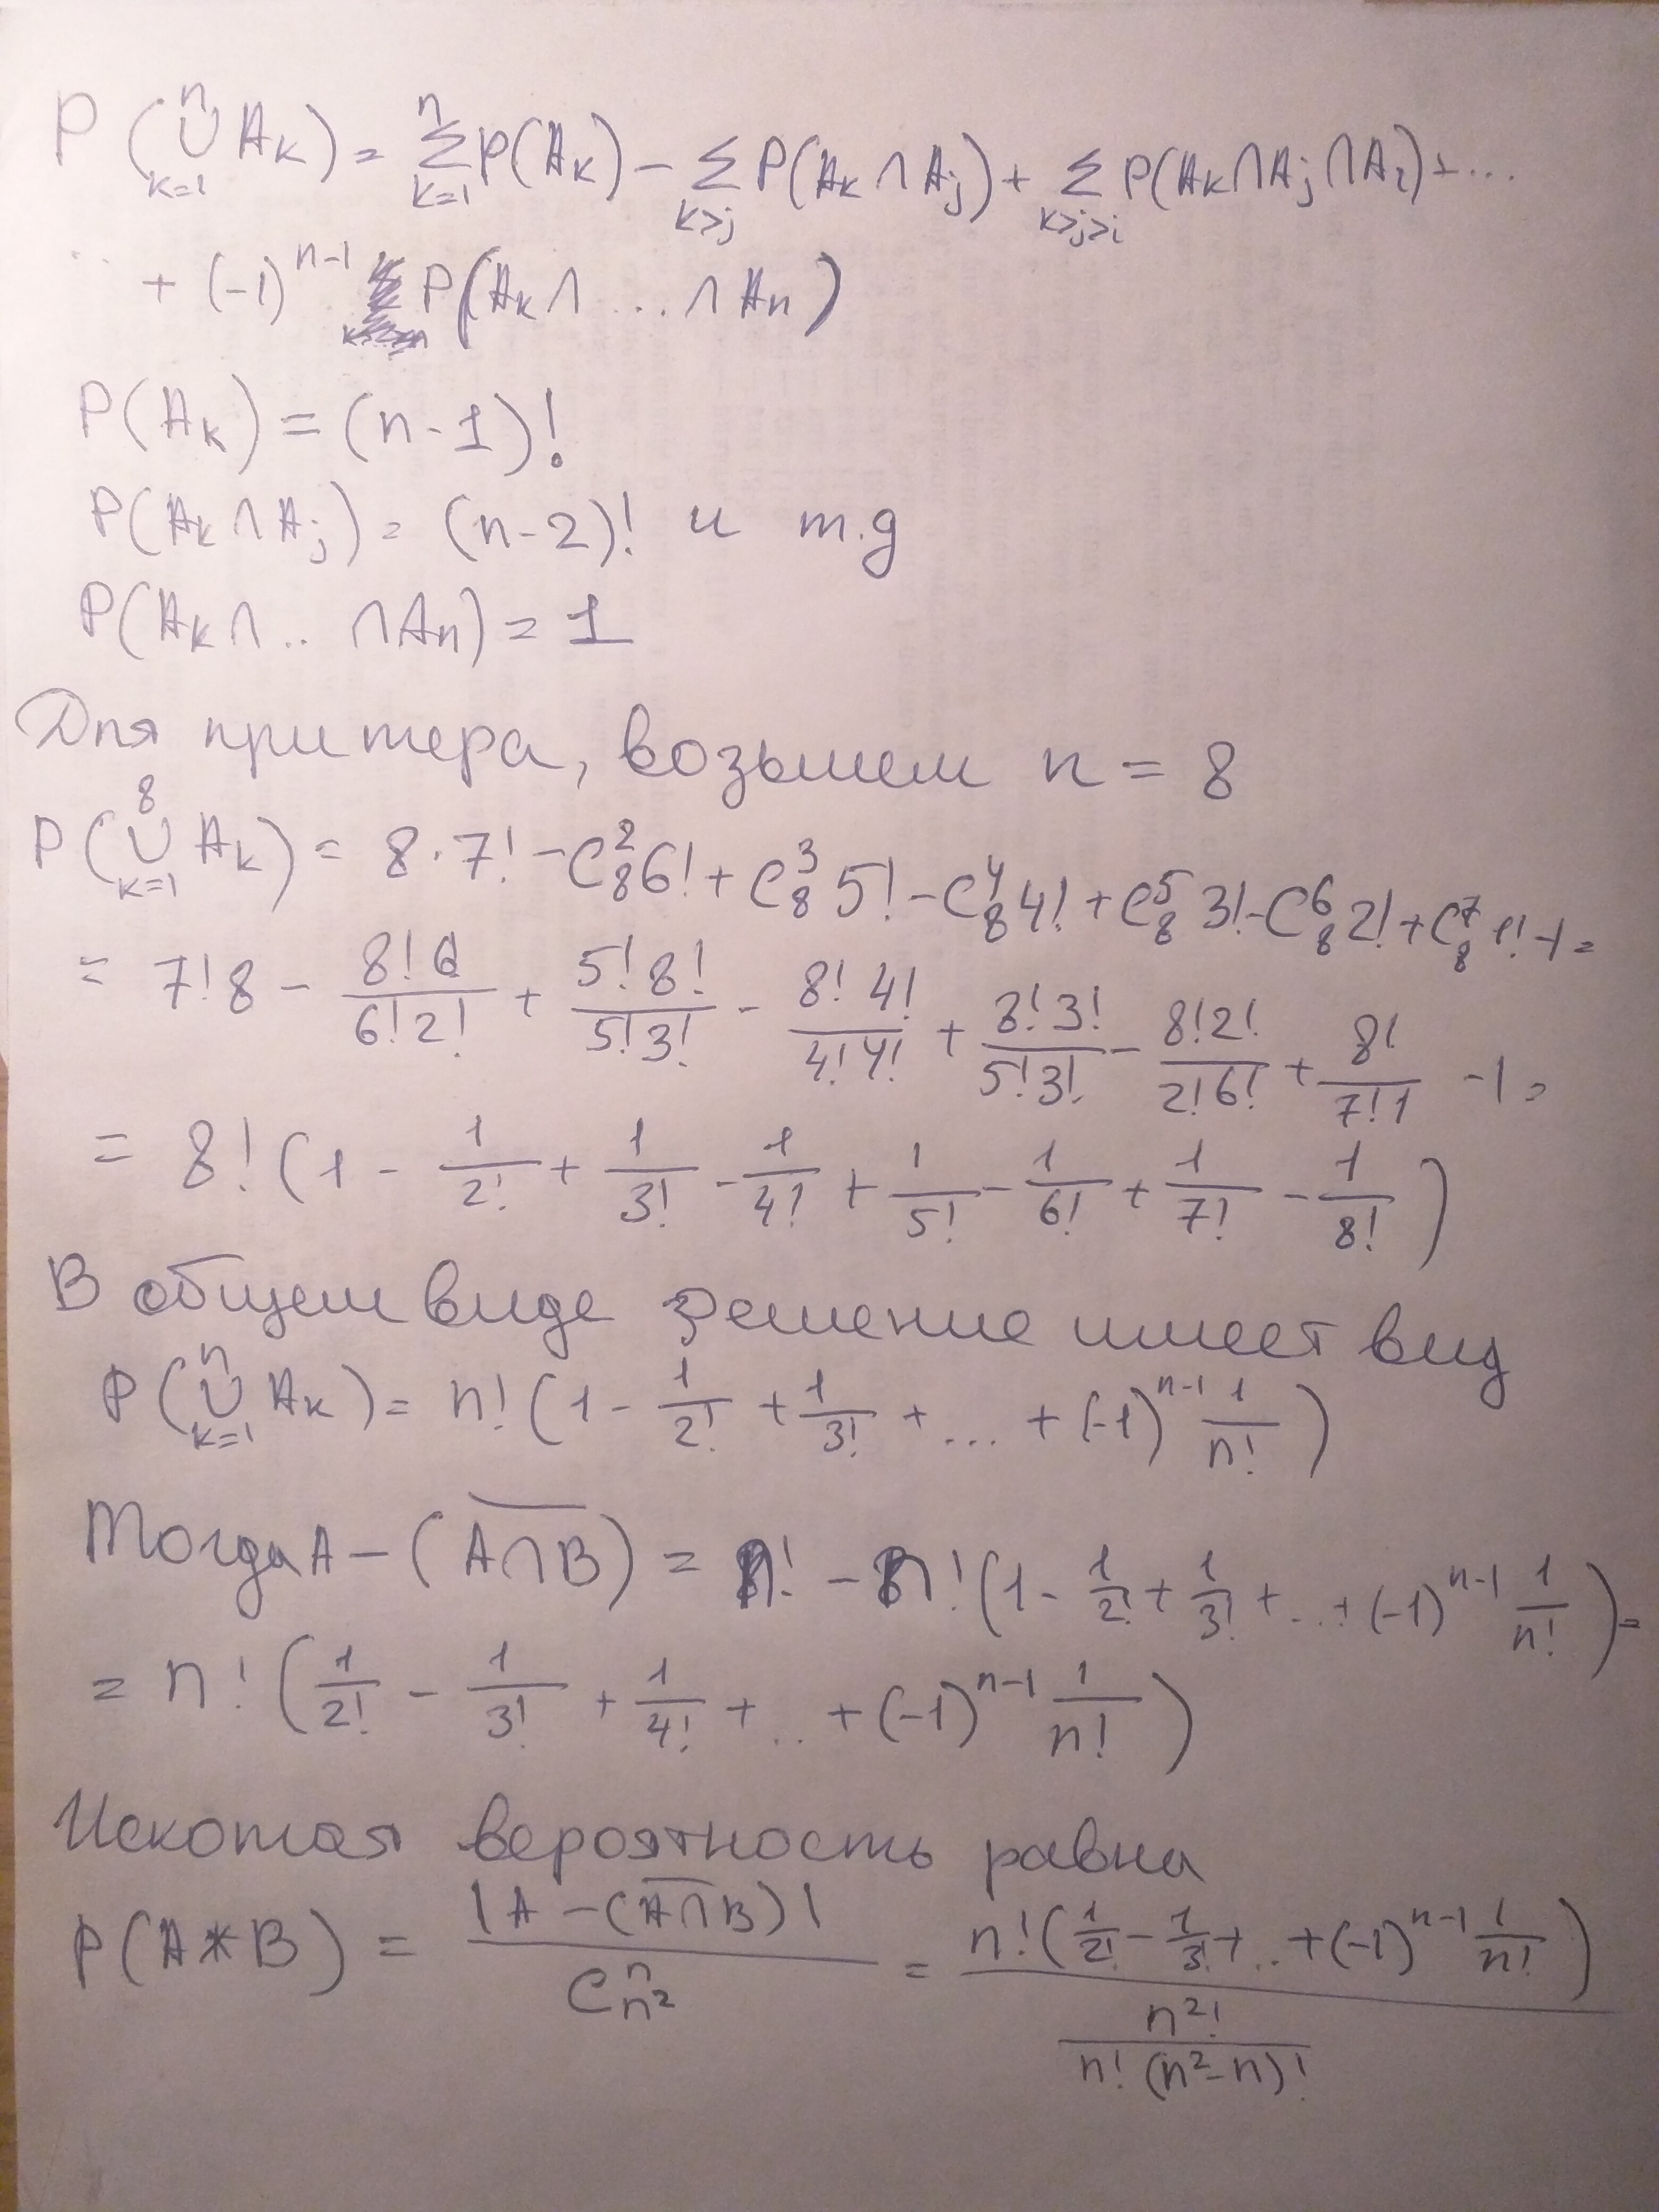 P(⋃_{k=1}^{n} A_k) = ∑_{k=1}^{n} P(A_k) − ∑_{k>j} P(A_k ∩ A_j) + ∑_{k>j>i} P(A_k ∩ A_j ∩ A_i) + ...
.. + (-1)^{n-1} P(A_k ∩ ... ∩ A_n)
P(A_k) = (n-1)!
P(A_k ∩ A_j) = (n-2)! и т.д
P(A_k ∩ .. ∩ A_n) = 1
Для примера, возьмем n = 8
P(⋃_{k=1}^{8} A_k) = 8·7! − C_8^2 6! + C_8^3 5! − C_8^4 4! + C_8^5 3! − C_8^6 2! + C_8^7 1! − 1 =
= 7!8 − \frac{8!6}{6!2!} + \frac{5!8!}{5!3!} − \frac{8!4!}{4!4!} + \frac{8!3!}{5!3!} − \frac{8!2!}{2!6!} + \frac{8!}{7!1} − 1 =
= 8!(1 − \frac{1}{2!} + \frac{1}{3!} − \frac{1}{4!} + \frac{1}{5!} − \frac{1}{6!} + \frac{1}{7!} − \frac{1}{8!})
В общем виде решение имеет вид
P(⋃_{k=1}^{n} A_k) = n!(1 − \frac{1}{2!} + \frac{1}{3!} + ... + (-1)^{n-1} \frac{1}{n!})
Тогда A − (\overline{A∩B}) = n! − n!(1 − \frac{1}{2!} + \frac{1}{3!} + ... + (-1)^{n-1} \frac{1}{n!}) =
= n!(\frac{1}{2!} − \frac{1}{3!} + \frac{1}{4!} + .. + (-1)^{n-1} \frac{1}{n!})
Искомая вероятность равна
P(A*B) = \frac{|A − (\overline{A∩B})|}{C_{n^2}^{n}} = \frac{n!(\frac{1}{2!} − \frac{1}{3!} + .. + (-1)^{n-1} \frac{1}{n!})}{\frac{n^2!}{n!(n^2-n)!}}